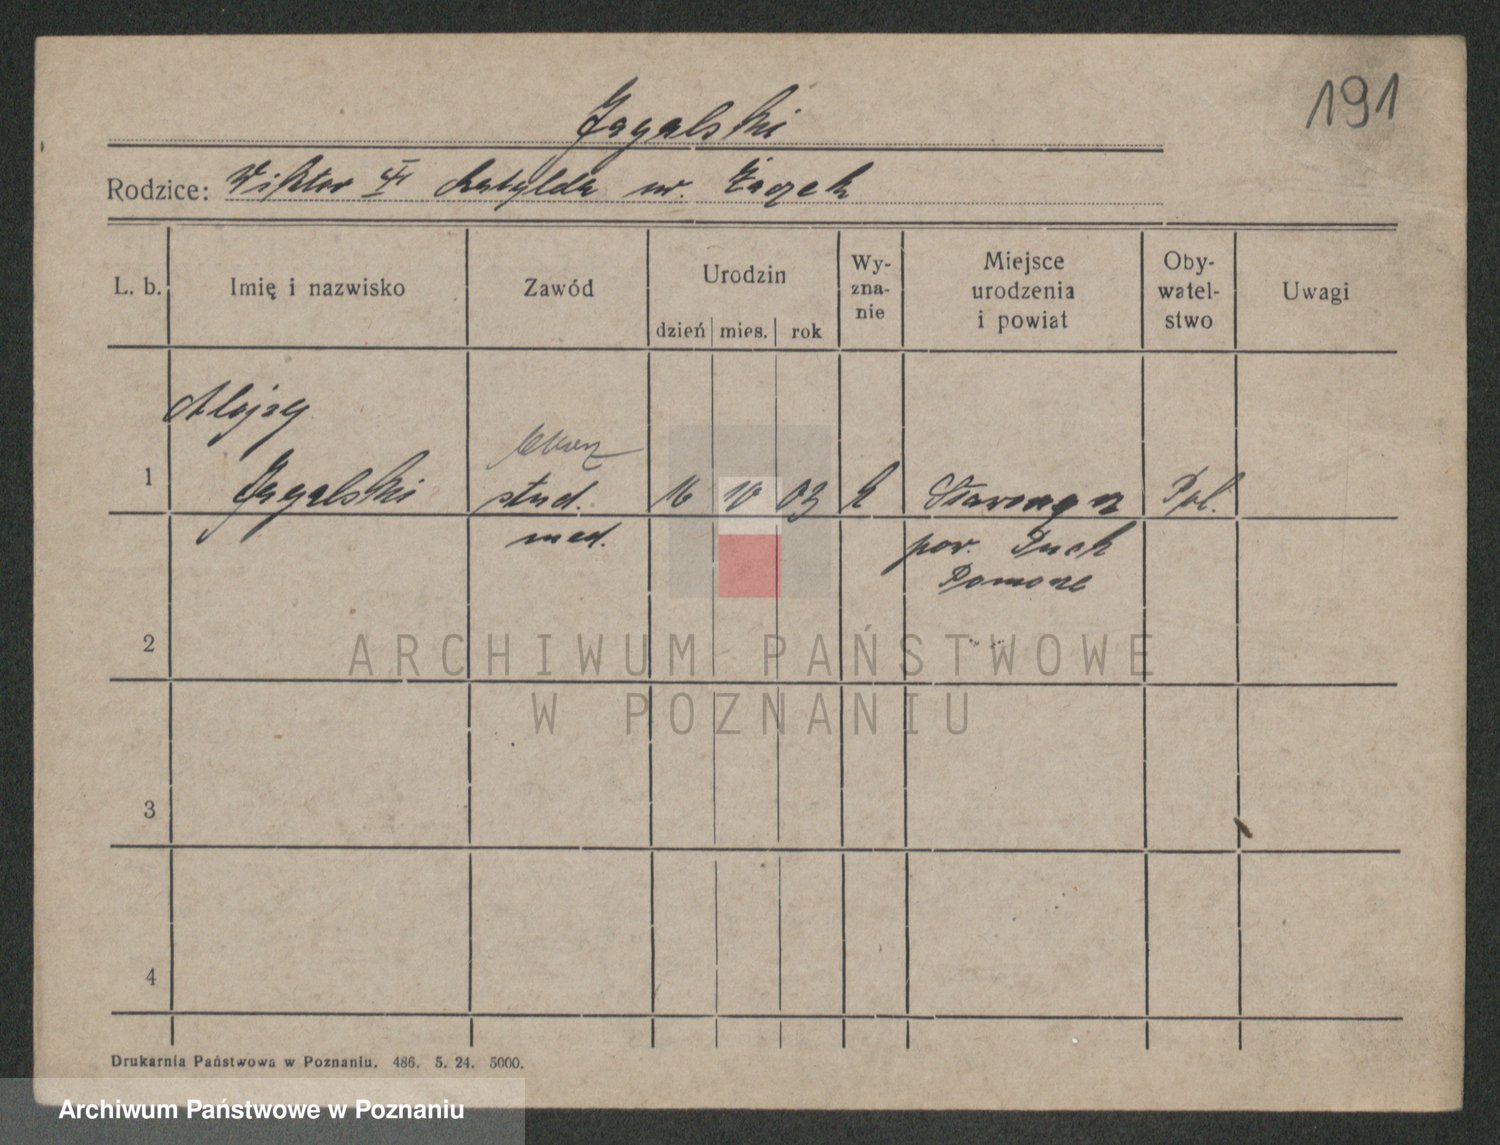 191
Jagalski
Rodzice: Wiktor i Matylda ur. Żaczek
L. b. Imię i nazwisko Zawód Urodzin dzień mies. rok Wy-
zna-
nie Miejsce
urodzenia
i powiat Oby-
watel-
stwo Uwagi
Alojzy
lekarz
1 Jagalski stud. 16 10 03 k Pol.
med. pow. Puck
Pomorze
2
3
4
ARCHIWUM PAŃSTWOWE
W POZNANIU
Drukarnia Państwowa w Poznaniu. 486. 5. 24. 5000.
Archiwum Państwowe w Poznaniu